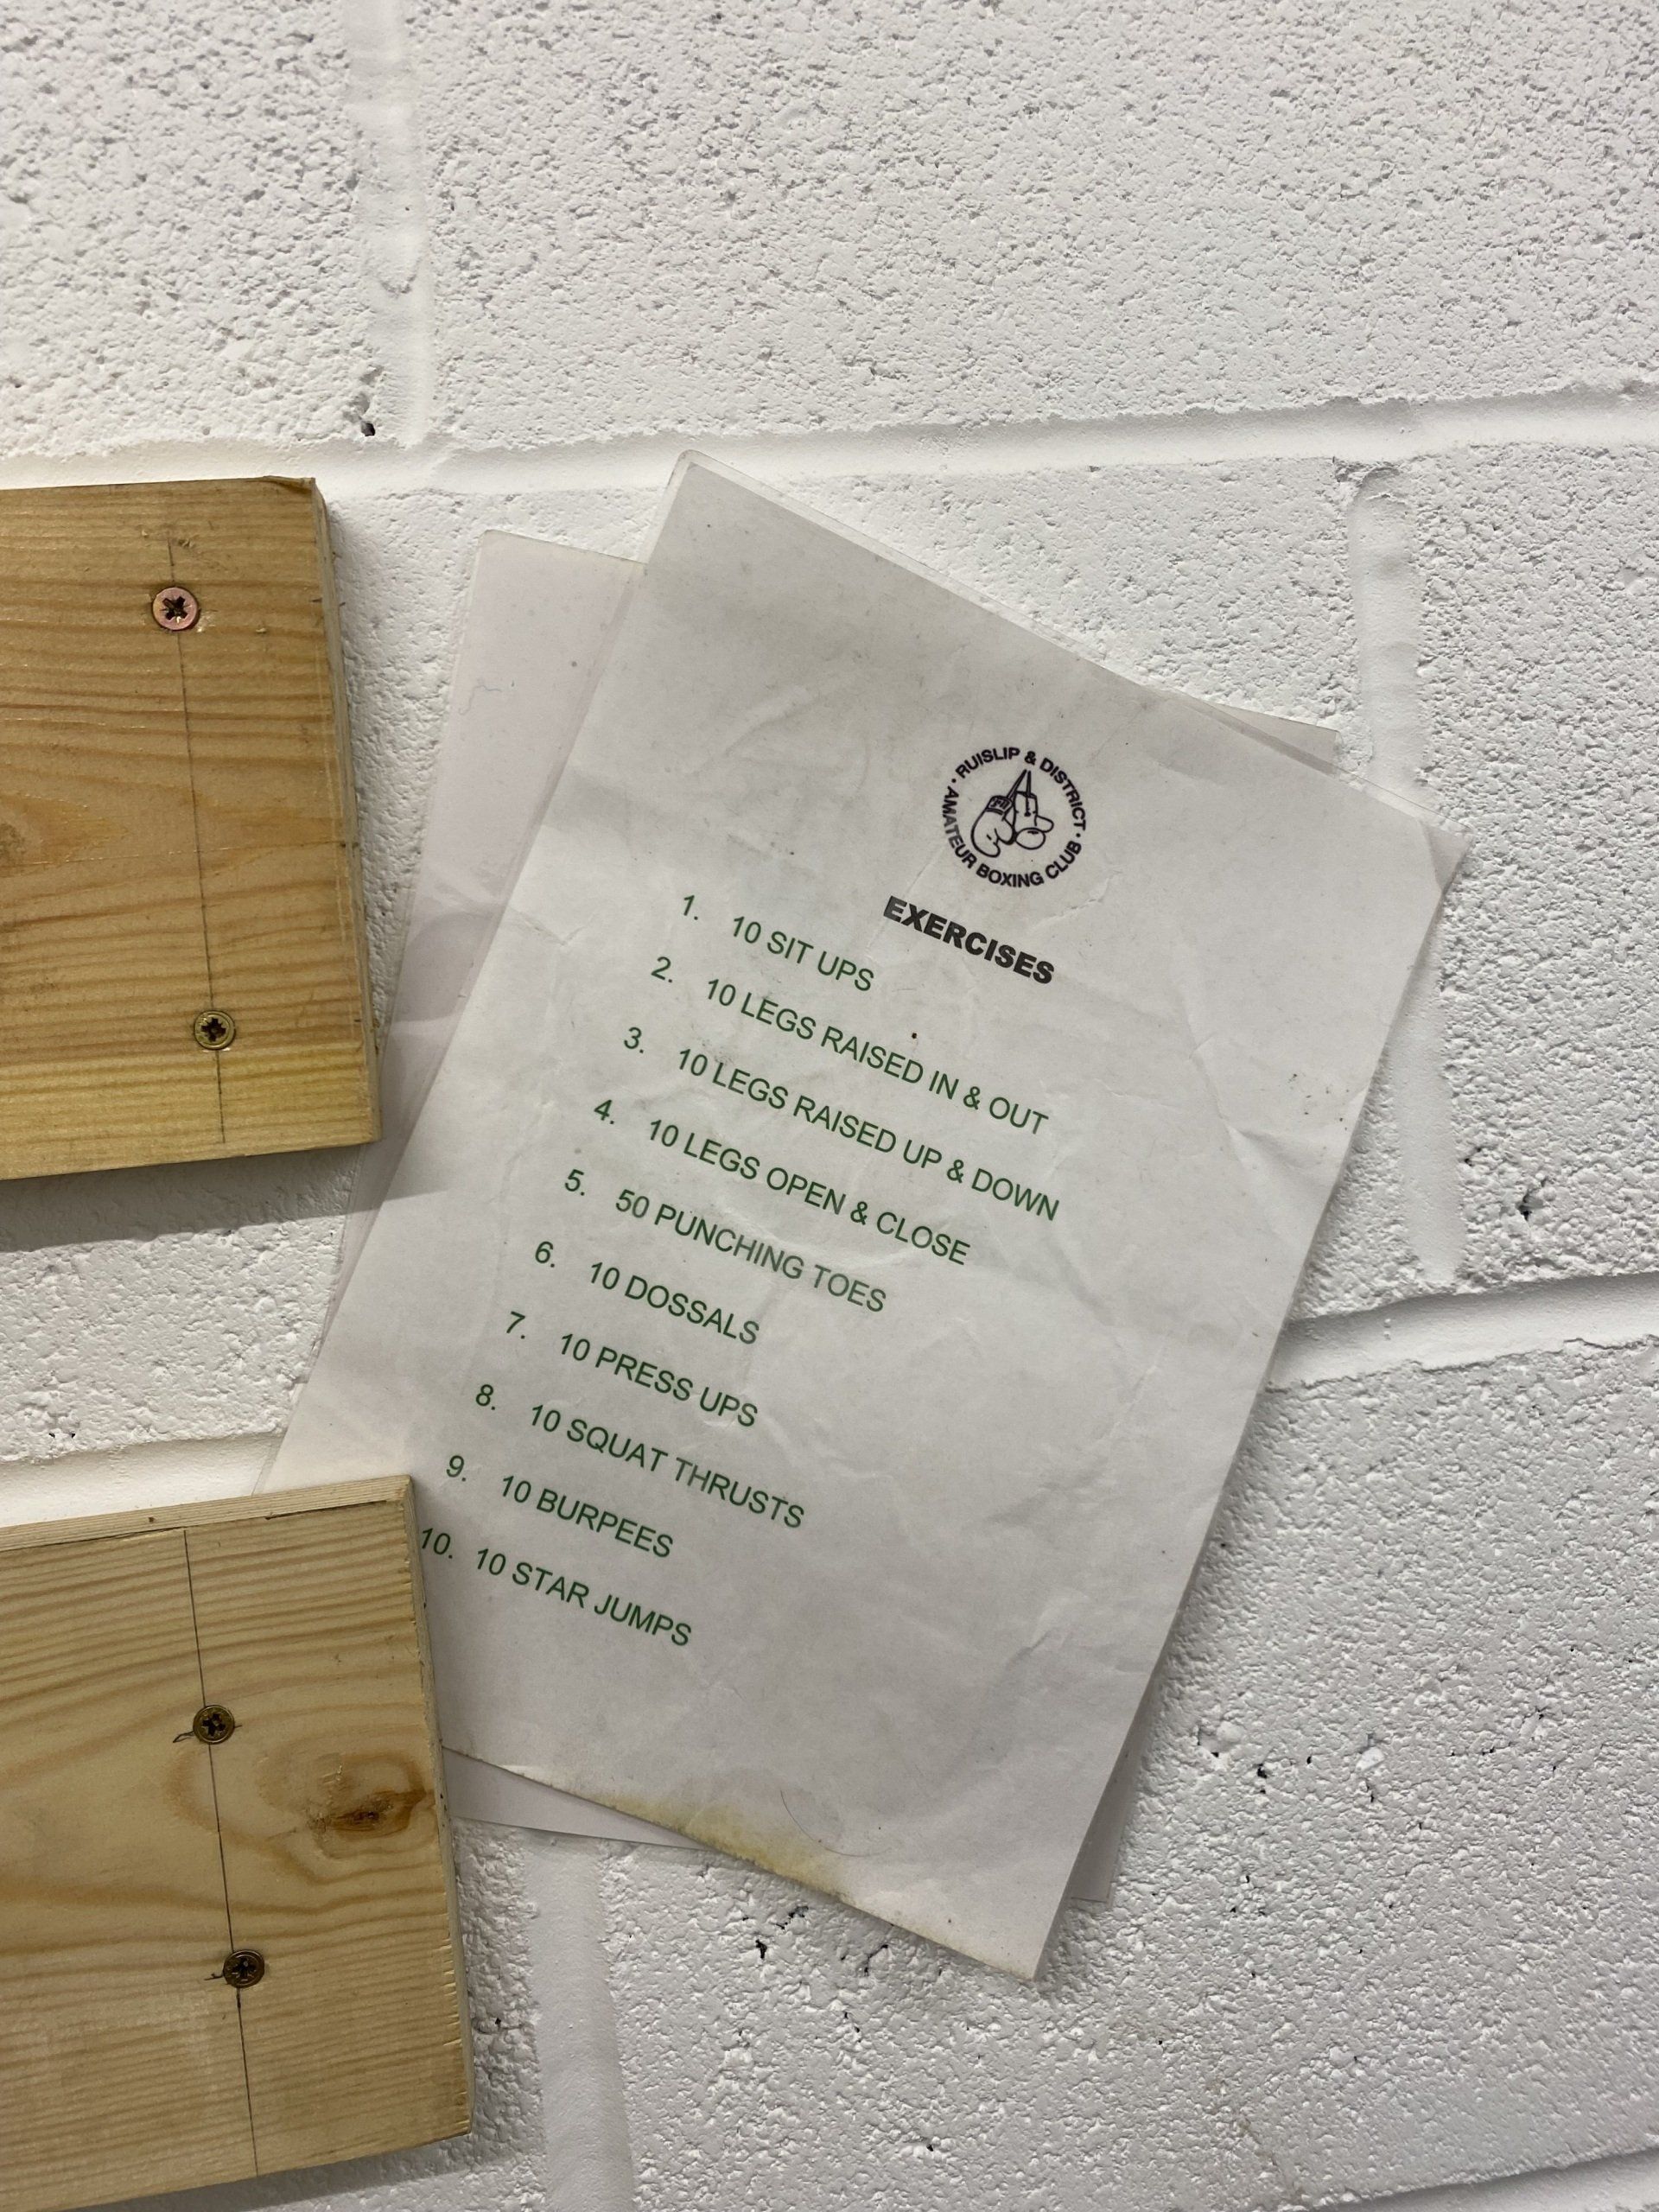 RUISLIP & DISTRICT
AMATEUR BOXING CLUB
EXERCISES
1. 10 SIT UPS
2. 10 LEGS RAISED IN & OUT
3. 10 LEGS RAISED UP & DOWN
4. 10 LEGS OPEN & CLOSE
5. 50 PUNCHING TOES
6. 10 DOSSALS
7. 10 PRESS UPS
8. 10 SQUAT THRUSTS
9. 10 BURPEES
10. 10 STAR JUMPS